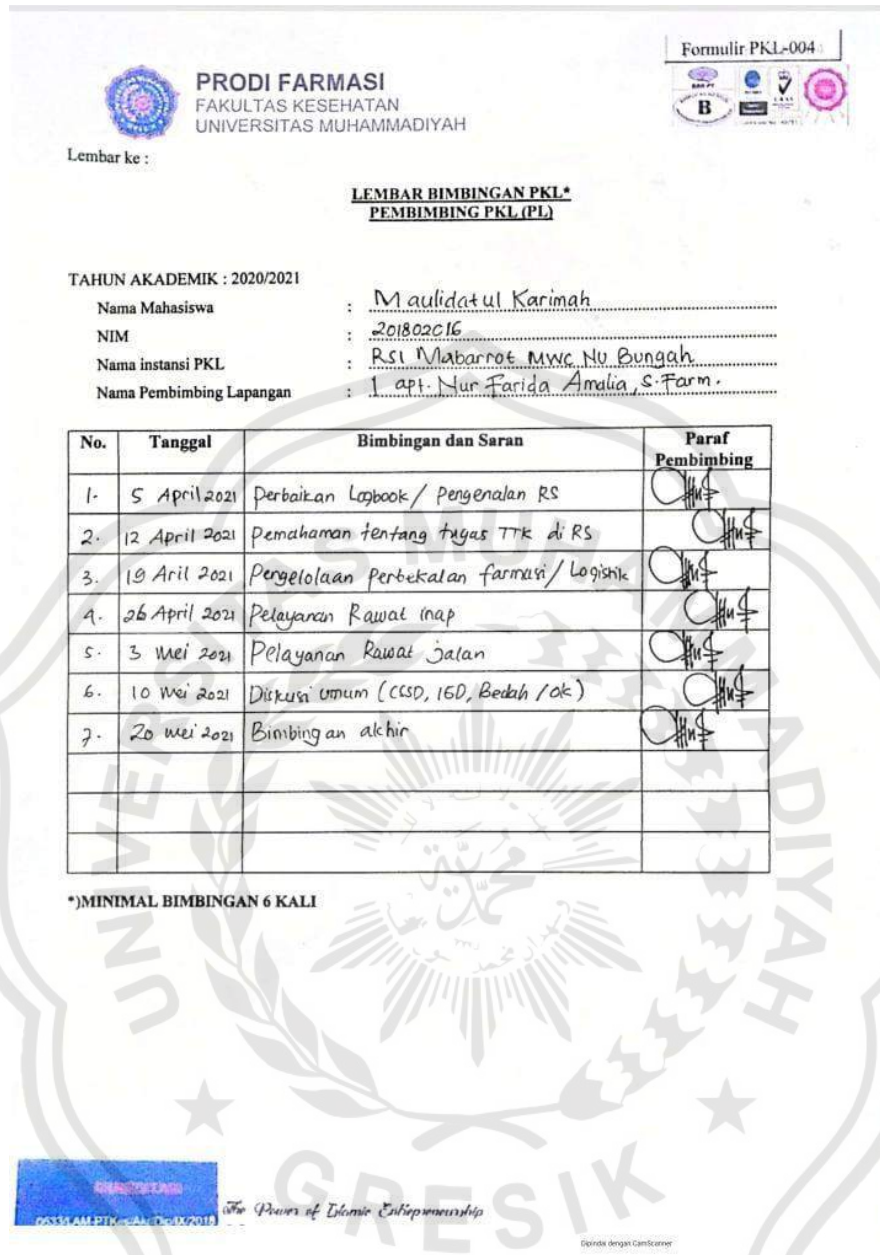 Formulir PKL-004
PRODI FARMASI
FAKULTAS KESEHATAN
UNIVERSITAS MUHAMMADIYAH
B
Lembar ke :
LEMBAR BIMBINGAN PKL*
PEMBIMBING PKL (PL)
TAHUN AKADEMIK : 2020/2021
Nama Mahasiswa : Maulidatul Karimah
NIM : 201802016
Nama instansi PKL : RSI Mabarrot MWC NU Bungah
Nama Pembimbing Lapangan : 1 apt. Nur Farida Amalia, S.Farm.
No. Tanggal Bimbingan dan Saran Paraf Pembimbing
1. 5 April 2021 Perbaikan Logbook / Pengenalan RS
2. 12 April 2021 Pemahaman tentang tugas TTK di RS
3. 19 Aril 2021 Pengelolaan Perbekalan farmasi / Logistik
4. 26 April 2021 Pelayanan Rawat inap
5. 3 Mei 2021 Pelayanan Rawat Jalan
6. 10 Mei 2021 Diskusi umum (CSSD, IGD, Bedah / OK)
7. 20 Mei 2021 Bimbingan akhir
*)MINIMAL BIMBINGAN 6 KALI
UNIVERSITAS MUHAMMADIYAH
GRESIK
The Power of Islamic Entrepreneurship
Dipindai dengan CamScanner